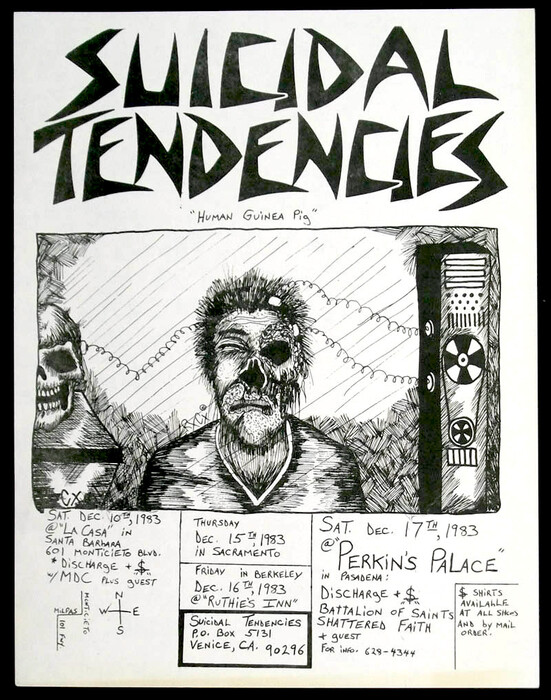 SUICIDAL
TENDENCIES
"HUMAN GUINEA PIG"
CX
SAT. DEC. 10TH, 1983
@ "LA CASA" IN
SANTA BARBARA
601 MONTICIETO BLVD.
* DISCHARGE + $
W/ MDC PLUS GUEST
MILPAS
MONTICIETO
101 FY
N
W E
S
THURSDAY
DEC. 15TH 1983
IN SACRAMENTO
FRIDAY IN BERKELEY
DEC. 16TH, 1983
@ "RUTHIE'S INN"
SUICIDAL TENDENCIES
P.O. BOX 5131
VENICE, CA. 90296
SAT. DEC. 17TH, 1983
@ "PERKIN'S PALACE"
IN PASADENA:
DISCHARGE + $
BATTALION OF SAINTS
SHATTERED FAITH
+ GUEST
FOR INFO. 628-4344
$ SHIRTS
AVAILABLE
AT ALL SHOWS
AND BY MAIL
ORDER.